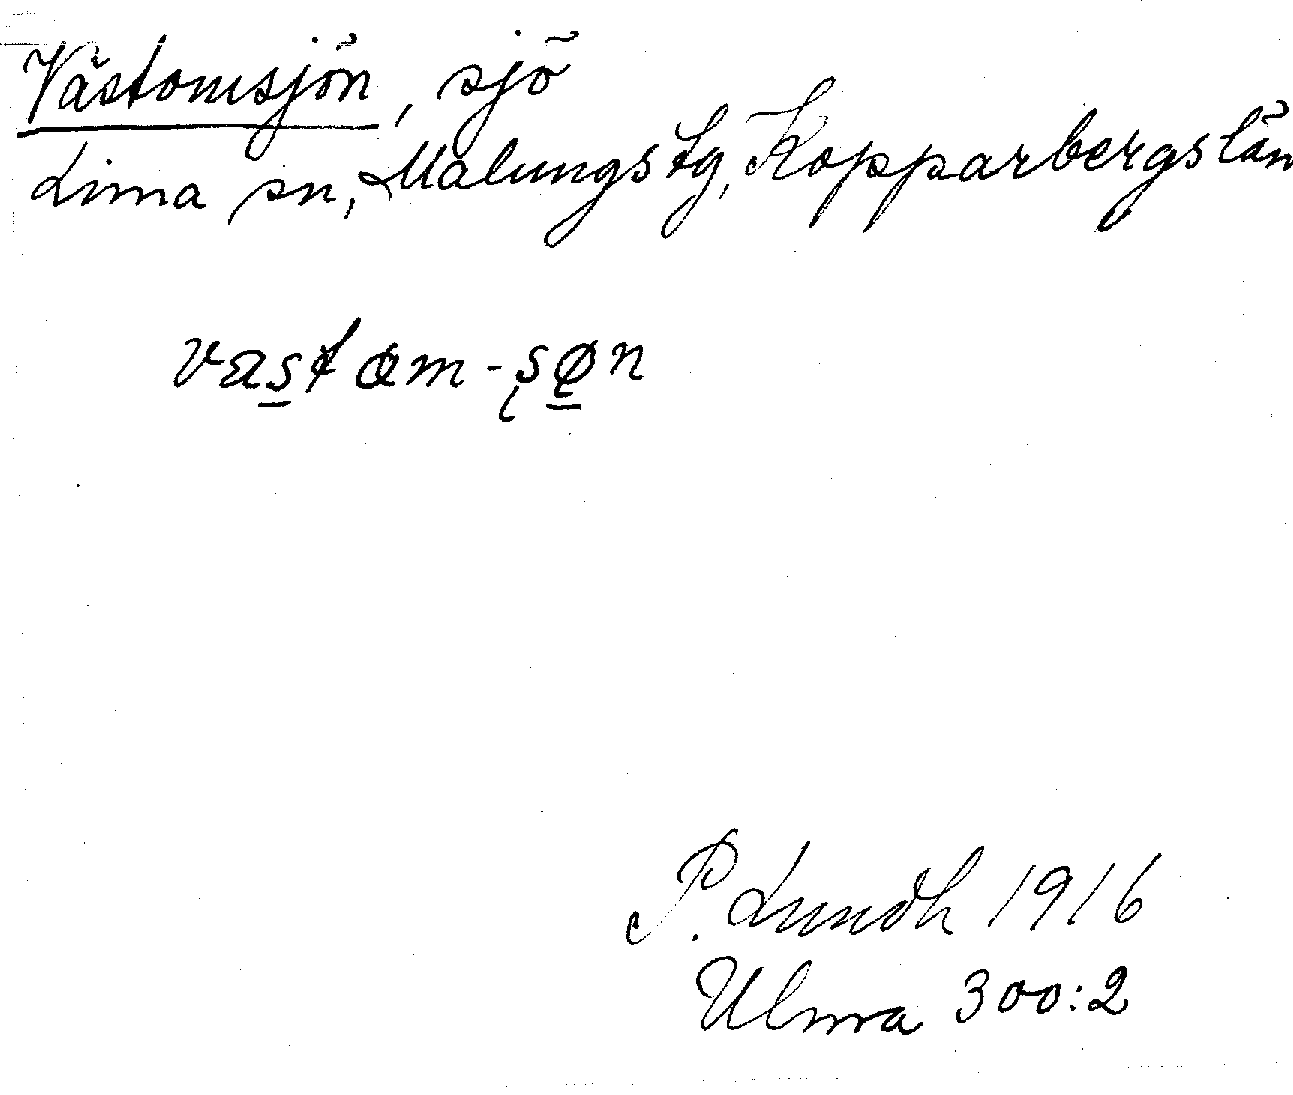 Västomsjön, sjö
Lima sn, Malungs tg, Kopparbergs län
västom-søn
P. Lundh 1916
Ulma 300:2